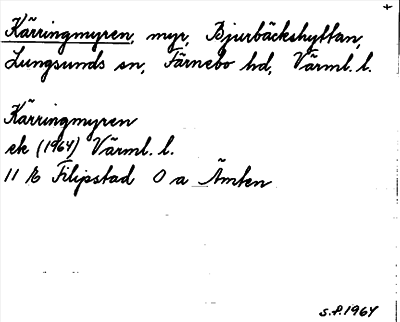 +
Kärringmyren, myr, Bjurbäckshyttan,
Lungsunds sn, Färnebo hd, Värml. l.
Kärringmyren
ek (1964) Värml. l.
11 E Filipstad 0 a Ämten
S.P.1964